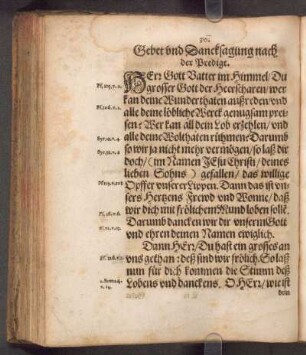 Gebet vnd Dancksagung nach
der Predigt.
HErr Gott Vatter im Himmel / Du
grosser Gott der Heerscharen / wer
kan deine Wunderthaten außreden / vnd
alle deine löbliche Werck genugsam prei-
sen: Wer kan all dein Lob erzehlen / vnd
alle deine Wolthaten rühmen? Darumb
so wir ja nicht mehr vermögen / so laß dir
doch / (im Namen JEsu Christi / deines
lieben Sohns) gefallen / das willige
Opffer vnserer Lippen. Dann das ist vn-
sers Hertzens Frewd vnd Wonne / daß
wir dich mit frölichem Mund loben solle.
Darumb dancken wir dir vnserm Gott
vnd ehren deinen Namen ewiglich.
Dann HErr / Du hast ein grosses an
vns gethan: deß sind wir frölich. So laß
nun für dich kommen die Stimm deß
Lobens vnd danckens. O HErr / wie ist